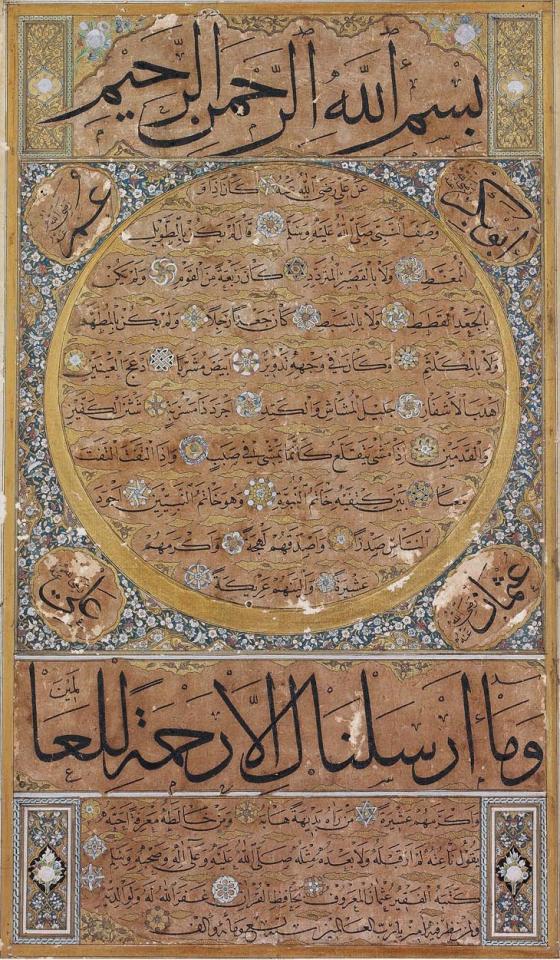 بسم الله الرحمن الرحيم
ابو بكر رضي الله عنه
عمر رضي الله عنه
عن علي رضي الله عنه كان اذا
وصف النبي صلى الله عليه وسلم قال لم يكن بالطويل
الممغط ولا بالقصير المتردد كان ربعة من القوم ولم يكن
بالجعد القطط ولا بالسبط كان جعدا رجلا ولم يكن بالمطهم
ولا بالمكلثم وكان في وجهه تدوير ابيض مشربا ادعج العينين
اهدب الاشفار جليل المشاش والكتد اجرد ذا مسربة شثن الكفين
والقدمين اذا مشى يتقلع كانما يمشي في صبب واذا التفت التفت
معا بين كتفيه خاتم النبوة وهو خاتم النبيين اجود
الناس صدرا واصدقهم لهجة واكرمهم
عشيرة والينهم عريكة
عثمان رضي الله عنه
علي رضي الله عنه
وما أرسلناك إلا رحمة للعالمين
واكرمهم عشيرة من رآه بديهة هابه ومن خالطه معرفة احبه
يقول ناعته لم ار قبله ولا بعده مثله صلى الله عليه وعلى آله وصحبه وسلم
كتبه الفقير عثمان المعروف بحافظ القرآن غفر الله له ولوالديه
ولمن نظر فيه آمين يا رب العالمين تسع ومائة والف